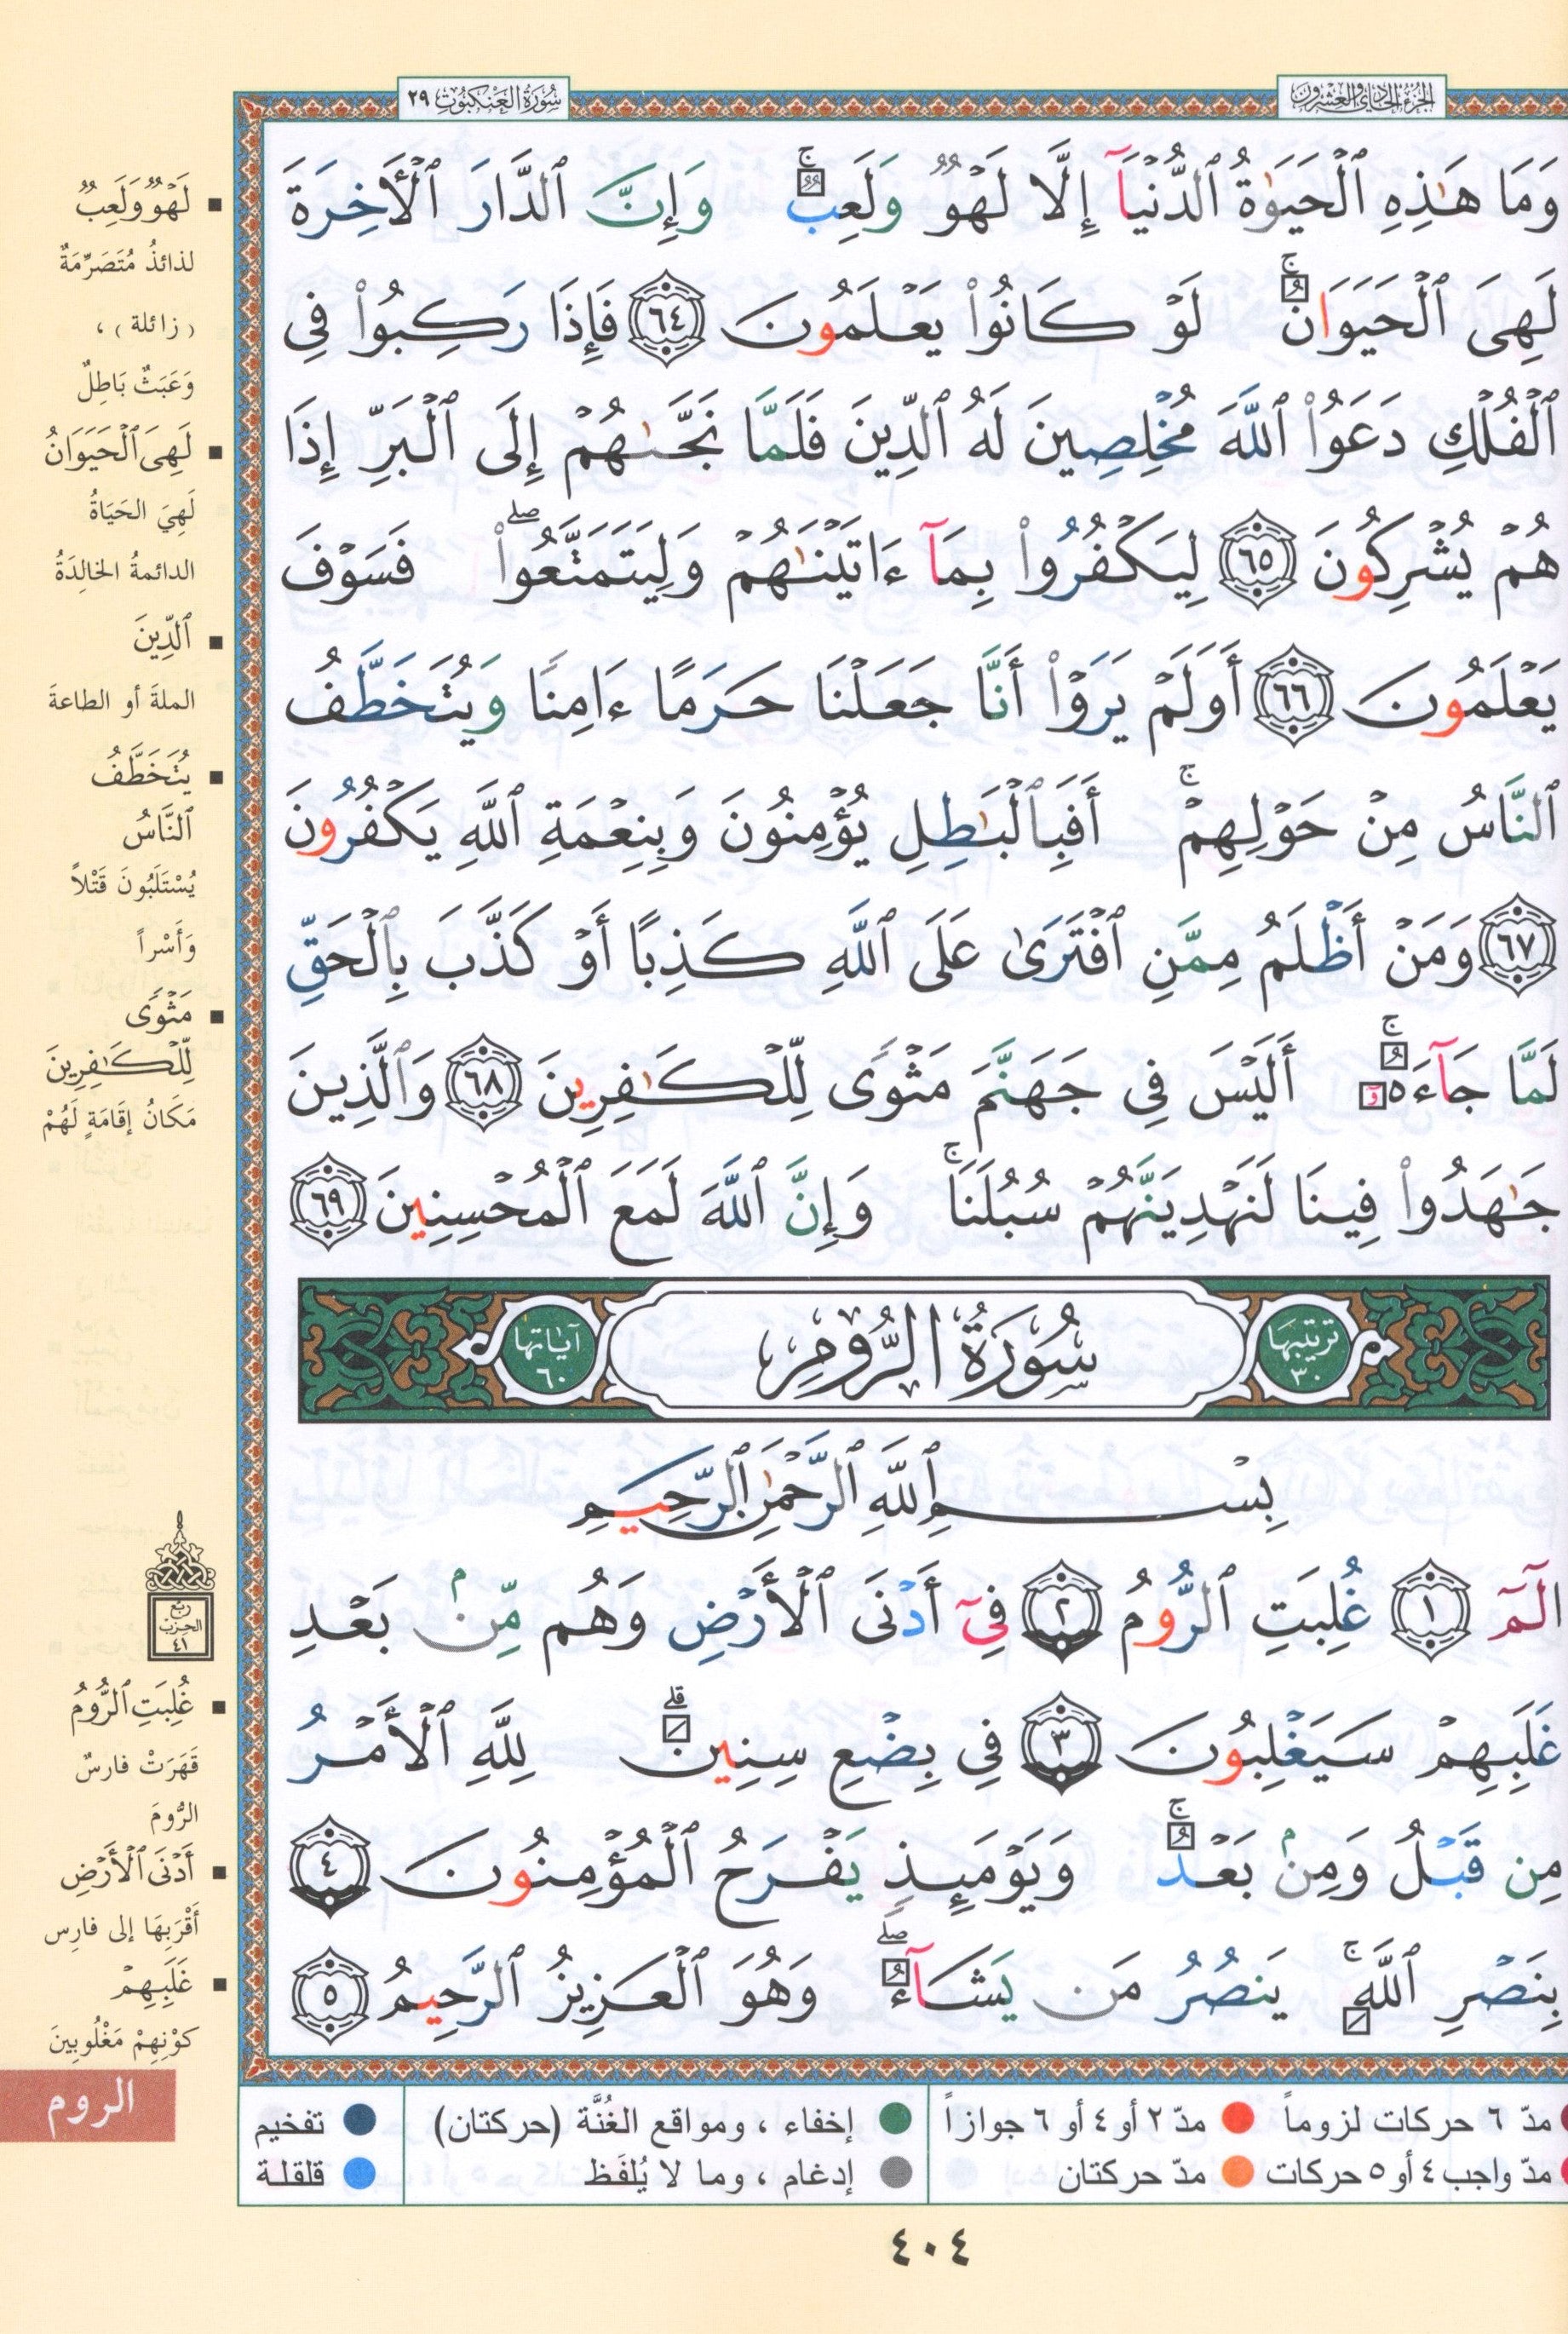 الجزء الحادي والعشرون
سورة العنكبوت ٢٩
وَمَا هَٰذِهِ ٱلْحَيَوٰةُ ٱلدُّنْيَآ إِلَّا لَهْوٌ وَلَعِبٌ ۚ وَإِنَّ ٱلدَّارَ ٱلْأَخِرَةَ
لَهِىَ ٱلْحَيَوَانُ ۚ لَوْ كَانُوا۟ يَعْلَمُونَ ٦٤ فَإِذَا رَكِبُوا۟ فِى
ٱلْفُلْكِ دَعَوُا۟ ٱللَّهَ مُخْلِصِينَ لَهُ ٱلدِّينَ فَلَمَّا نَجَّىٰهُمْ إِلَى ٱلْبَرِّ إِذَا
هُمْ يُشْرِكُونَ ٦٥ لِيَكْفُرُوا۟ بِمَآ ءَاتَيْنَٰهُمْ وَلِيَتَمَتَّعُوا۟ ۖ فَسَوْفَ
يَعْلَمُونَ ٦٦ أَوَلَمْ يَرَوْا۟ أَنَّا جَعَلْنَا حَرَمًا ءَامِنًا وَيُتَخَطَّفُ
ٱلنَّاسُ مِنْ حَوْلِهِمْ ۚ أَفَبِٱلْبَٰطِلِ يُؤْمِنُونَ وَبِنِعْمَةِ ٱللَّهِ يَكْفُرُونَ
٦٧ وَمَنْ أَظْلَمُ مِمَّنِ ٱفْتَرَىٰ عَلَى ٱللَّهِ كَذِبًا أَوْ كَذَّبَ بِٱلْحَقِّ
لَمَّا جَآءَهُۥٓ ۚ أَلَيْسَ فِى جَهَنَّمَ مَثْوًى لِّلْكَٰفِرِينَ ٦٨ وَٱلَّذِينَ
جَٰهَدُوا۟ فِينَا لَنَهْدِيَنَّهُمْ سُبُلَنَا ۚ وَإِنَّ ٱللَّهَ لَمَعَ ٱلْمُحْسِنِينَ ٦٩
ترتيبها ٣٠ سُورَةُ الرُّومِ آياتها ٦٠
بِسْمِ ٱللَّهِ ٱلرَّحْمَٰنِ ٱلرَّحِيمِ
الٓمٓ ١ غُلِبَتِ ٱلرُّومُ ٢ فِىٓ أَدْنَى ٱلْأَرْضِ وَهُم مِّنۢ بَعْدِ
غَلَبِهِمْ سَيَغْلِبُونَ ٣ فِى بِضْعِ سِنِينَ ۗ لِلَّهِ ٱلْأَمْرُ
مِن قَبْلُ وَمِنۢ بَعْدُ ۚ وَيَوْمَئِذٍ يَفْرَحُ ٱلْمُؤْمِنُونَ ٤
بِنَصْرِ ٱللَّهِ ۚ يَنصُرُ مَن يَشَآءُ ۖ وَهُوَ ٱلْعَزِيزُ ٱلرَّحِيمُ ٥
لَهْوٌ وَلَعِبٌ
لذائذُ مُتَصَرِّمَةٌ
(زائلة)،
وَعَبَثٌ بَاطِلٌ
لَهِىَ ٱلْحَيَوَانُ
لَهِيَ الحَيَاةُ
الدائمةُ الخالِدَةُ
ٱلدِّينَ
الملةَ أو الطاعةَ
يُتَخَطَّفُ
ٱلنَّاسُ
يُسْتَلَبُونَ قَتْلاً
وَأَسْراً
مَثْوًى
لِّلْكَٰفِرِينَ
مَكَانُ إقَامَةٍ لَهُمْ
ربع
الحزب
٤١
غُلِبَتِ ٱلرُّومُ
قَهَرَتْ فارسٌ
الرُّومَ
أَدْنَى ٱلْأَرْضِ
أَقْرَبِهَا إلى فارِس
غَلَبِهِمْ
كَوْنِهِمْ مَغْلُوبِينَ
الروم
مدّ ٦ حركات لزوماً مدّ ٢ أو ٤ أو ٦ جوازاً إخفاء ، ومواقع الغُنَّة (حركتان) تفخيم
مدّ واجب ٤ أو ٥ حركات مدّ حركتان إدغام ، وما لا يُلفَظ قلقلة
٤٠٤